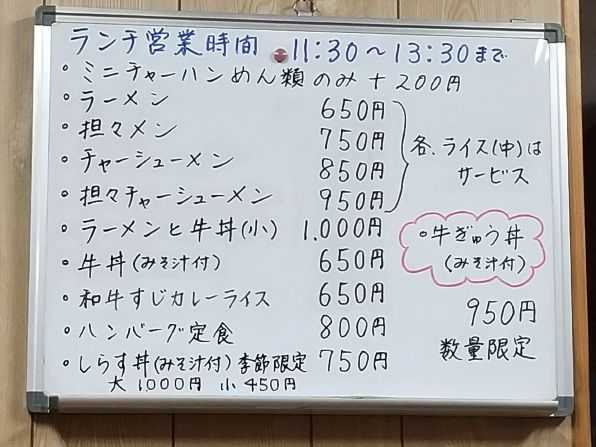 ランチ営業時間 11:30〜13:30まで
・ミニチャーハンめん類のみ+200円
・ラーメン 650円
・担々メン 750円
・チャーシューメン 850円
・担々チャーシューメン 950円
各、ライス(中)は
サービス
・ラーメンと牛丼(小) 1,000円
・牛丼(みそ汁付) 650円
・和牛すじカレーライス 650円
・ハンバーグ定食 800円
・しらす丼(みそ汁付)季節限定 750円
大1000円 小450円
・牛ぎゅう丼
(みそ汁付)
950円
数量限定